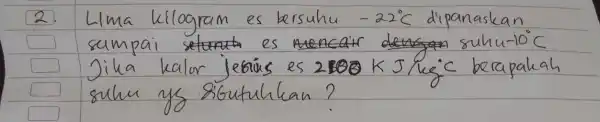 2. Lima kilogram es bersuhu -22°C dipanaskan
sampai es suhu-10°C
Jika kalor jenis es 2100 KJ/kg°C berapakah
suhu yg dibutuhkan ?